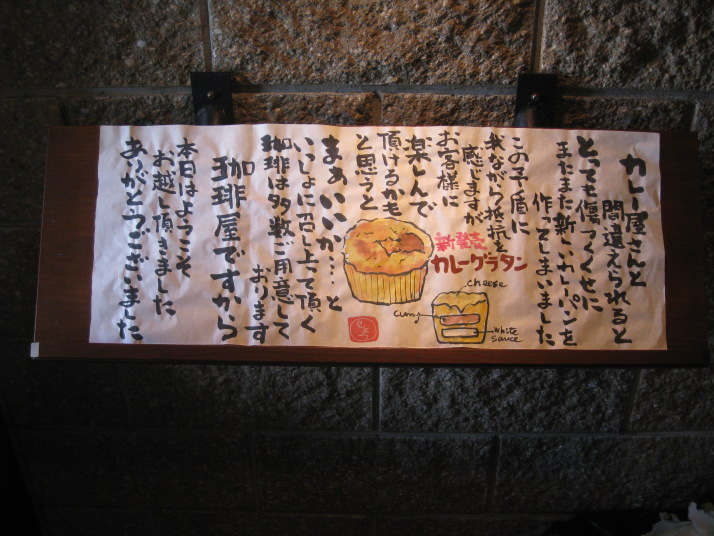 カレー屋さんと
間違えられると
とっても傷つくくせに
またまた新しいカレーパンを
作ってしまいました
この矛盾に
我ながら抵抗を
感じますが
お客様に
楽しんで
頂けるかも
と思うと
まぁいいか…と
いっしょに召し上って頂く
珈琲は多数ご用意して
おります
珈琲屋ですから
本日はようこそ
お越し頂きました
ありがとうございました
新発売
カレーグラタン
cheese
curry
white
sauce